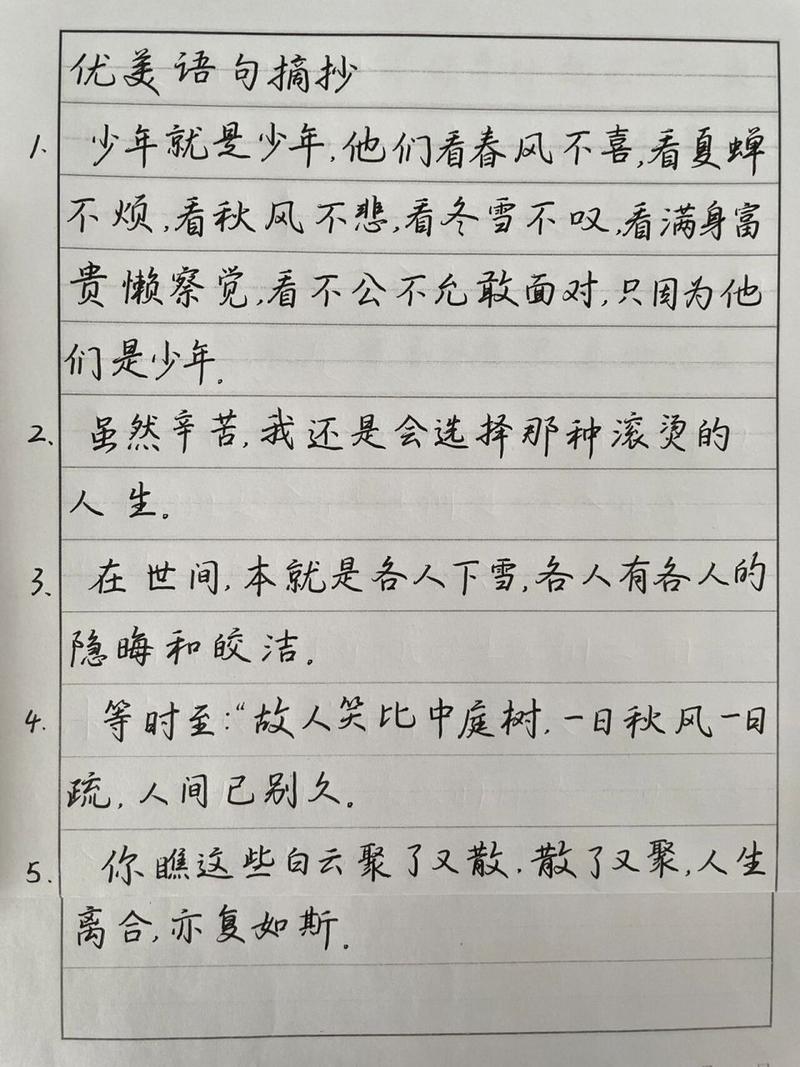 优美语句摘抄
1. 少年就是少年,他们看春风不喜,看夏蝉
不烦,看秋风不悲,看冬雪不叹,看满身富
贵懒察觉,看不公不允敢面对,只因为他
们是少年.
2、虽然辛苦,我还是会选择那种滚烫的
人生。
3、在世间,本就是各人下雪,各人有各人的
隐晦和皎洁.
4. 等时至:“故人笑比中庭树,一日秋风一日
疏,人间已别久。
5. 你瞧这些白云聚了又散,散了又聚,人生
离合,亦复如斯.